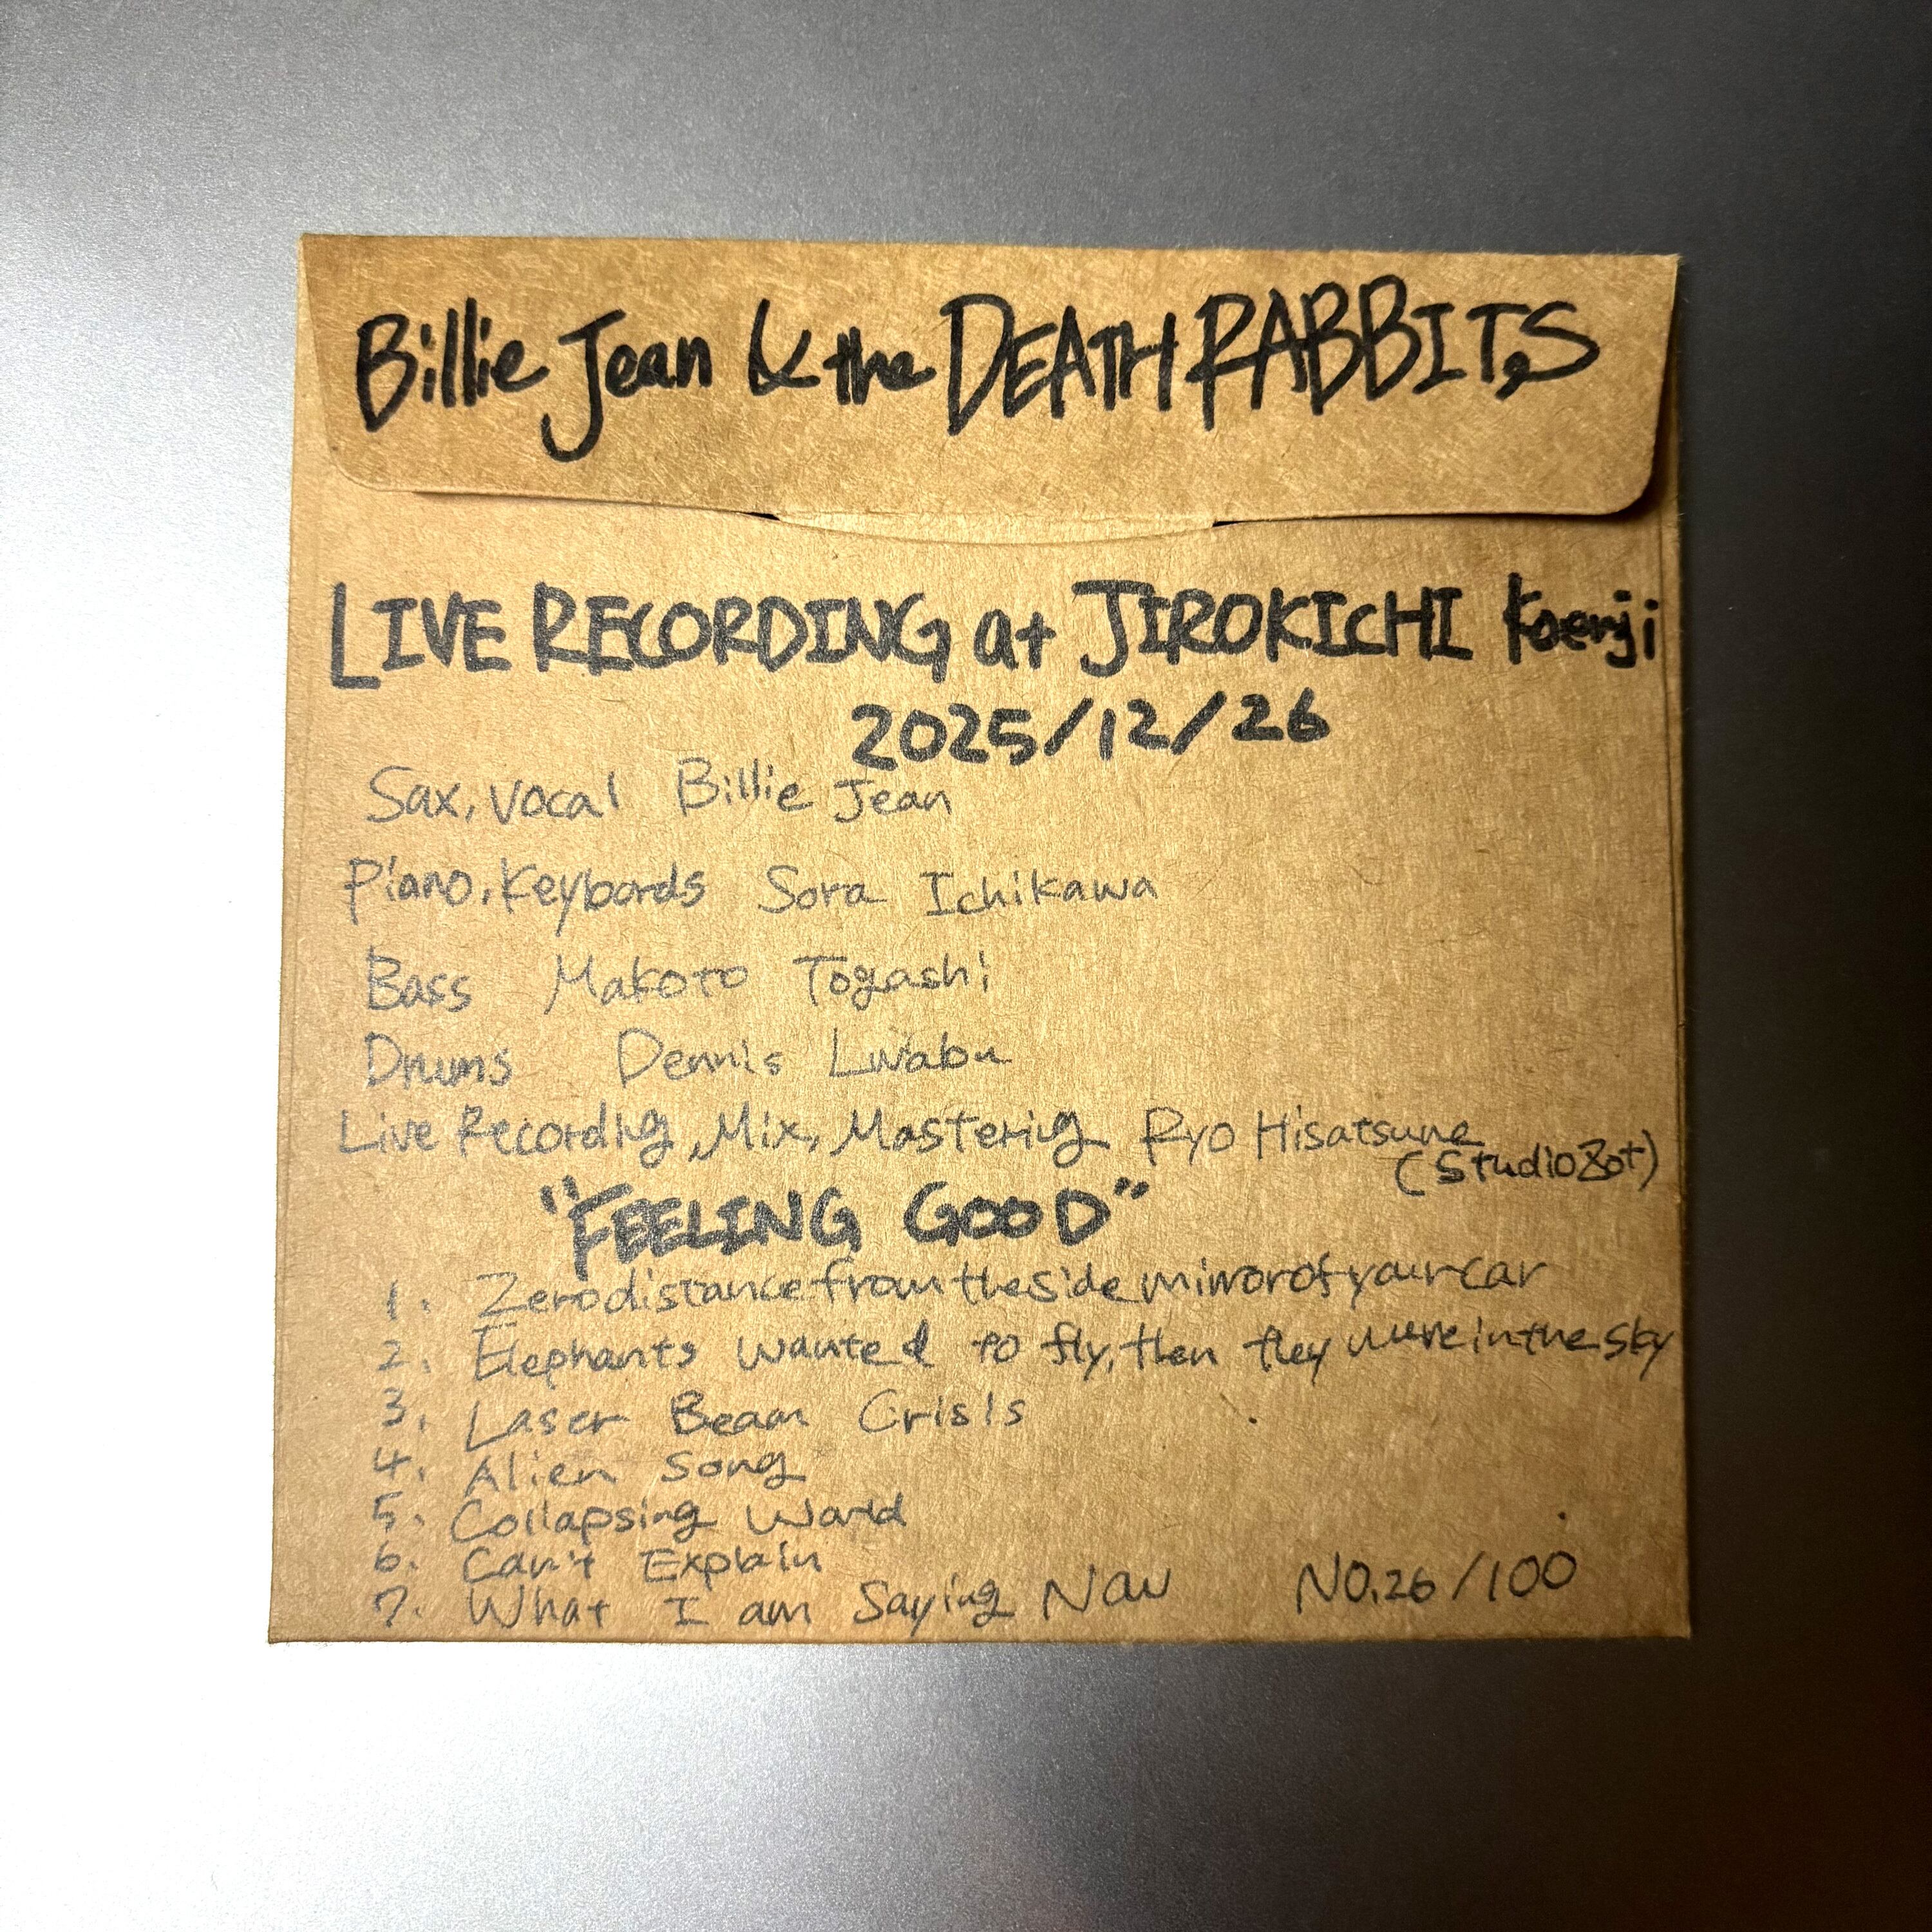 Billie Jean & the DEATH RABBITS
LIVE RECORDING at JIROKICHI Koenji
2025/12/26
Sax, Vocal Billie Jean
Piano, Keybords Sora Ichikawa
Bass Makoto Togashi
Drums Dennis Lwabu
Live Recording, Mix, Mastering Ryo Hisatsune
(Studio Zot)
"FEELING GOOD"
1. Zero distance from the side mirror of your car
2. Elephants wanted to fly, then they were in the sky
3. Laser Beam Crisis
4. Alien Song
5. Collapsing World
6. Can't Explain
7. What I am Saying Now NO.26/100